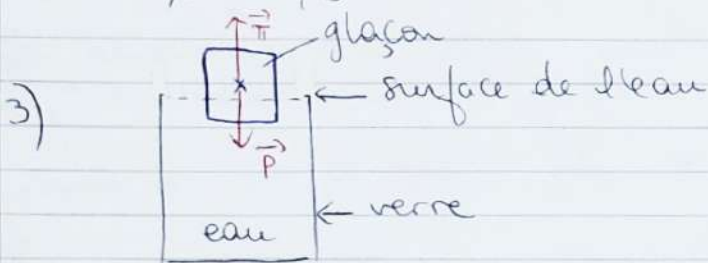 π⃗
glaçon
surface de l'eau
3)
P⃗
verre
eau